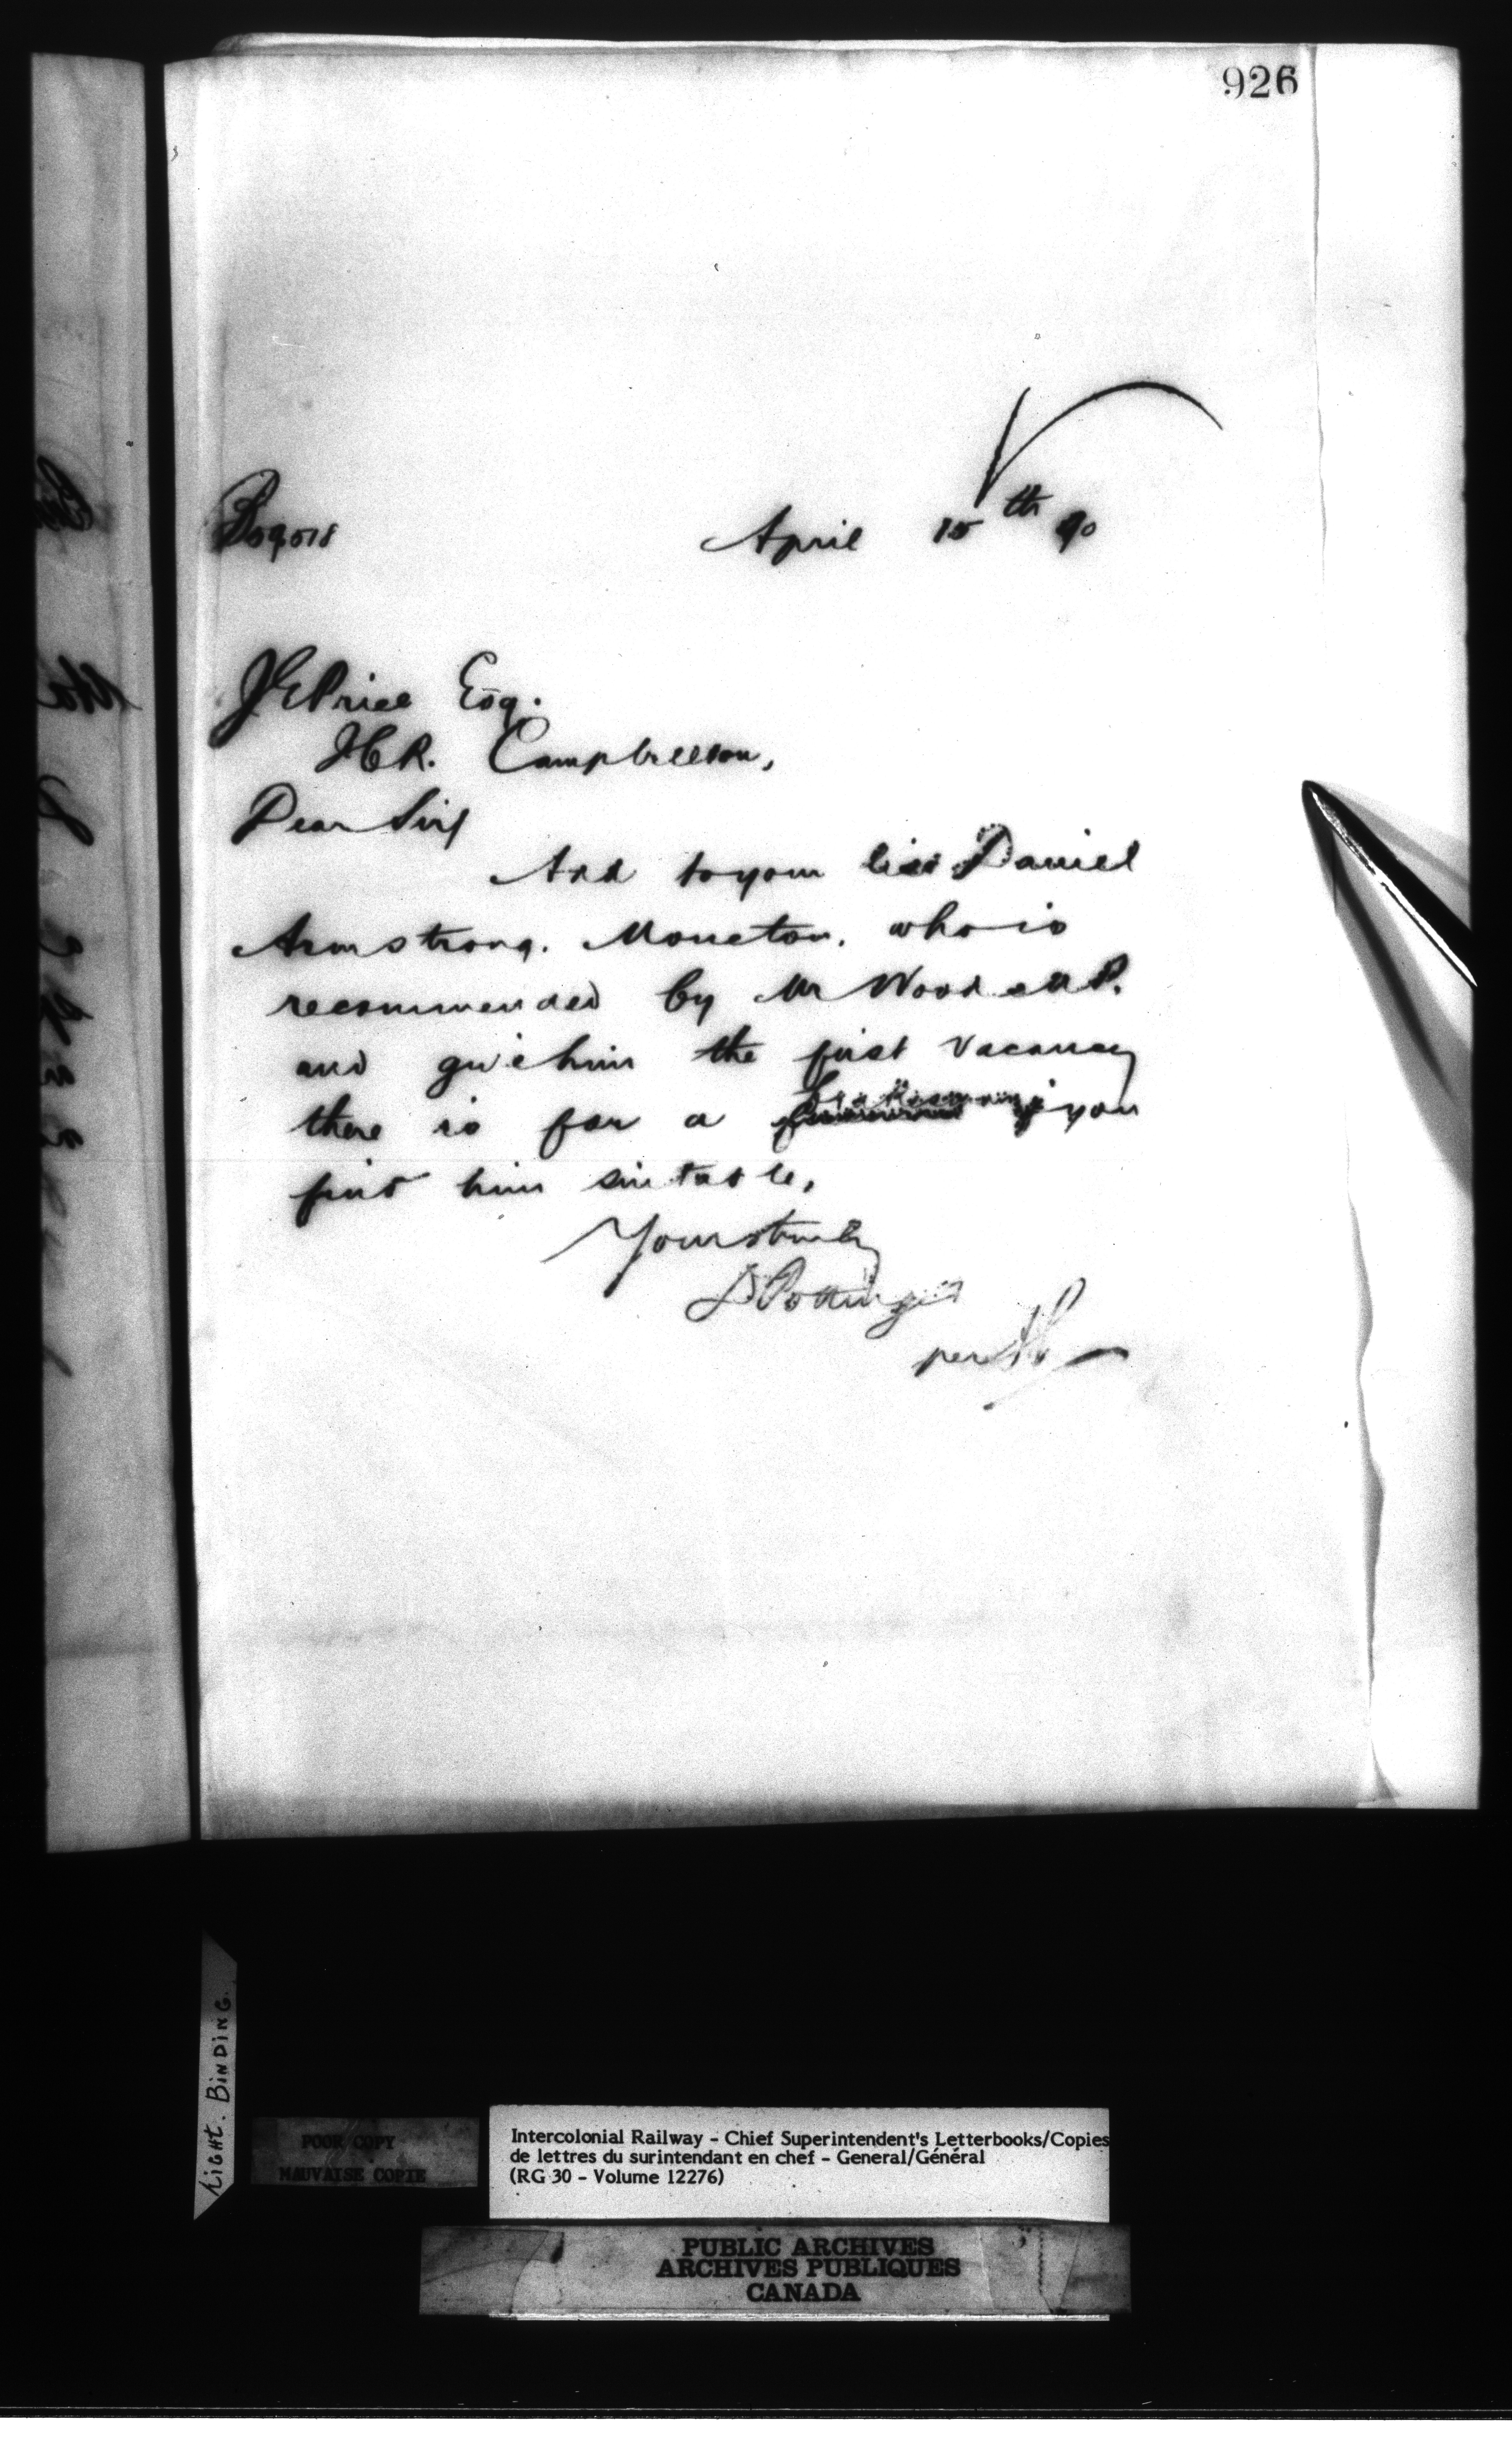 926
April 15th 90
J E Price Esq.
Campbellton,
Dear Sir
Add to your list Daniel
Armstrong. Moncton. who is
recommended by Mr Wood M.P.
and give him the first vacancy
there is for a Brakesman if you
find him suitable,
Yours truly
D Pottinger
per
LIGHT. BINDING.
POOR COPY
MAUVAISE COPIE
Intercolonial Railway - Chief Superintendent's Letterbooks/Copies
de lettres du surintendant en chef - General/Général
(RG 30 - Volume 12276)
PUBLIC ARCHIVES
ARCHIVES PUBLIQUES
CANADA